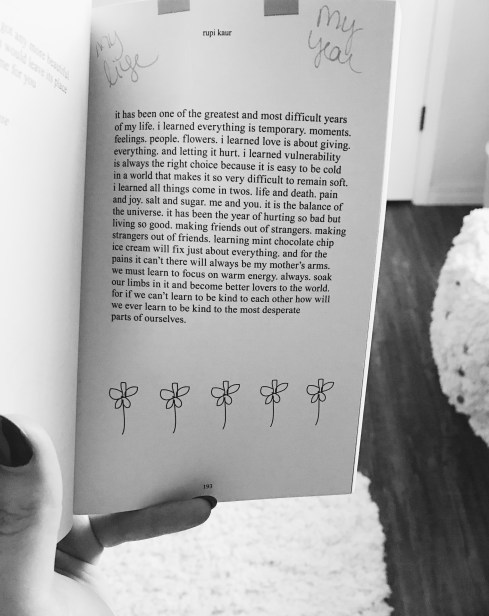 my life
my year
rupi kaur
it has been one of the greatest and most difficult years
of my life. i learned everything is temporary. moments.
feelings. people. flowers. i learned love is about giving.
everything. and letting it hurt. i learned vulnerability
is always the right choice because it is easy to be cold
in a world that makes it so very difficult to remain soft.
i learned all things come in twos. life and death. pain
and joy. salt and sugar. me and you. it is the balance of
the universe. it has been the year of hurting so bad but
living so good. making friends out of strangers. making
strangers out of friends. learning mint chocolate chip
ice cream will fix just about everything. and for the
pains it can't there will always be my mother's arms.
we must learn to focus on warm energy. always. soak
our limbs in it and become better lovers to the world.
for if we can't learn to be kind to each other how will
we ever learn to be kind to the most desperate
parts of ourselves.
193